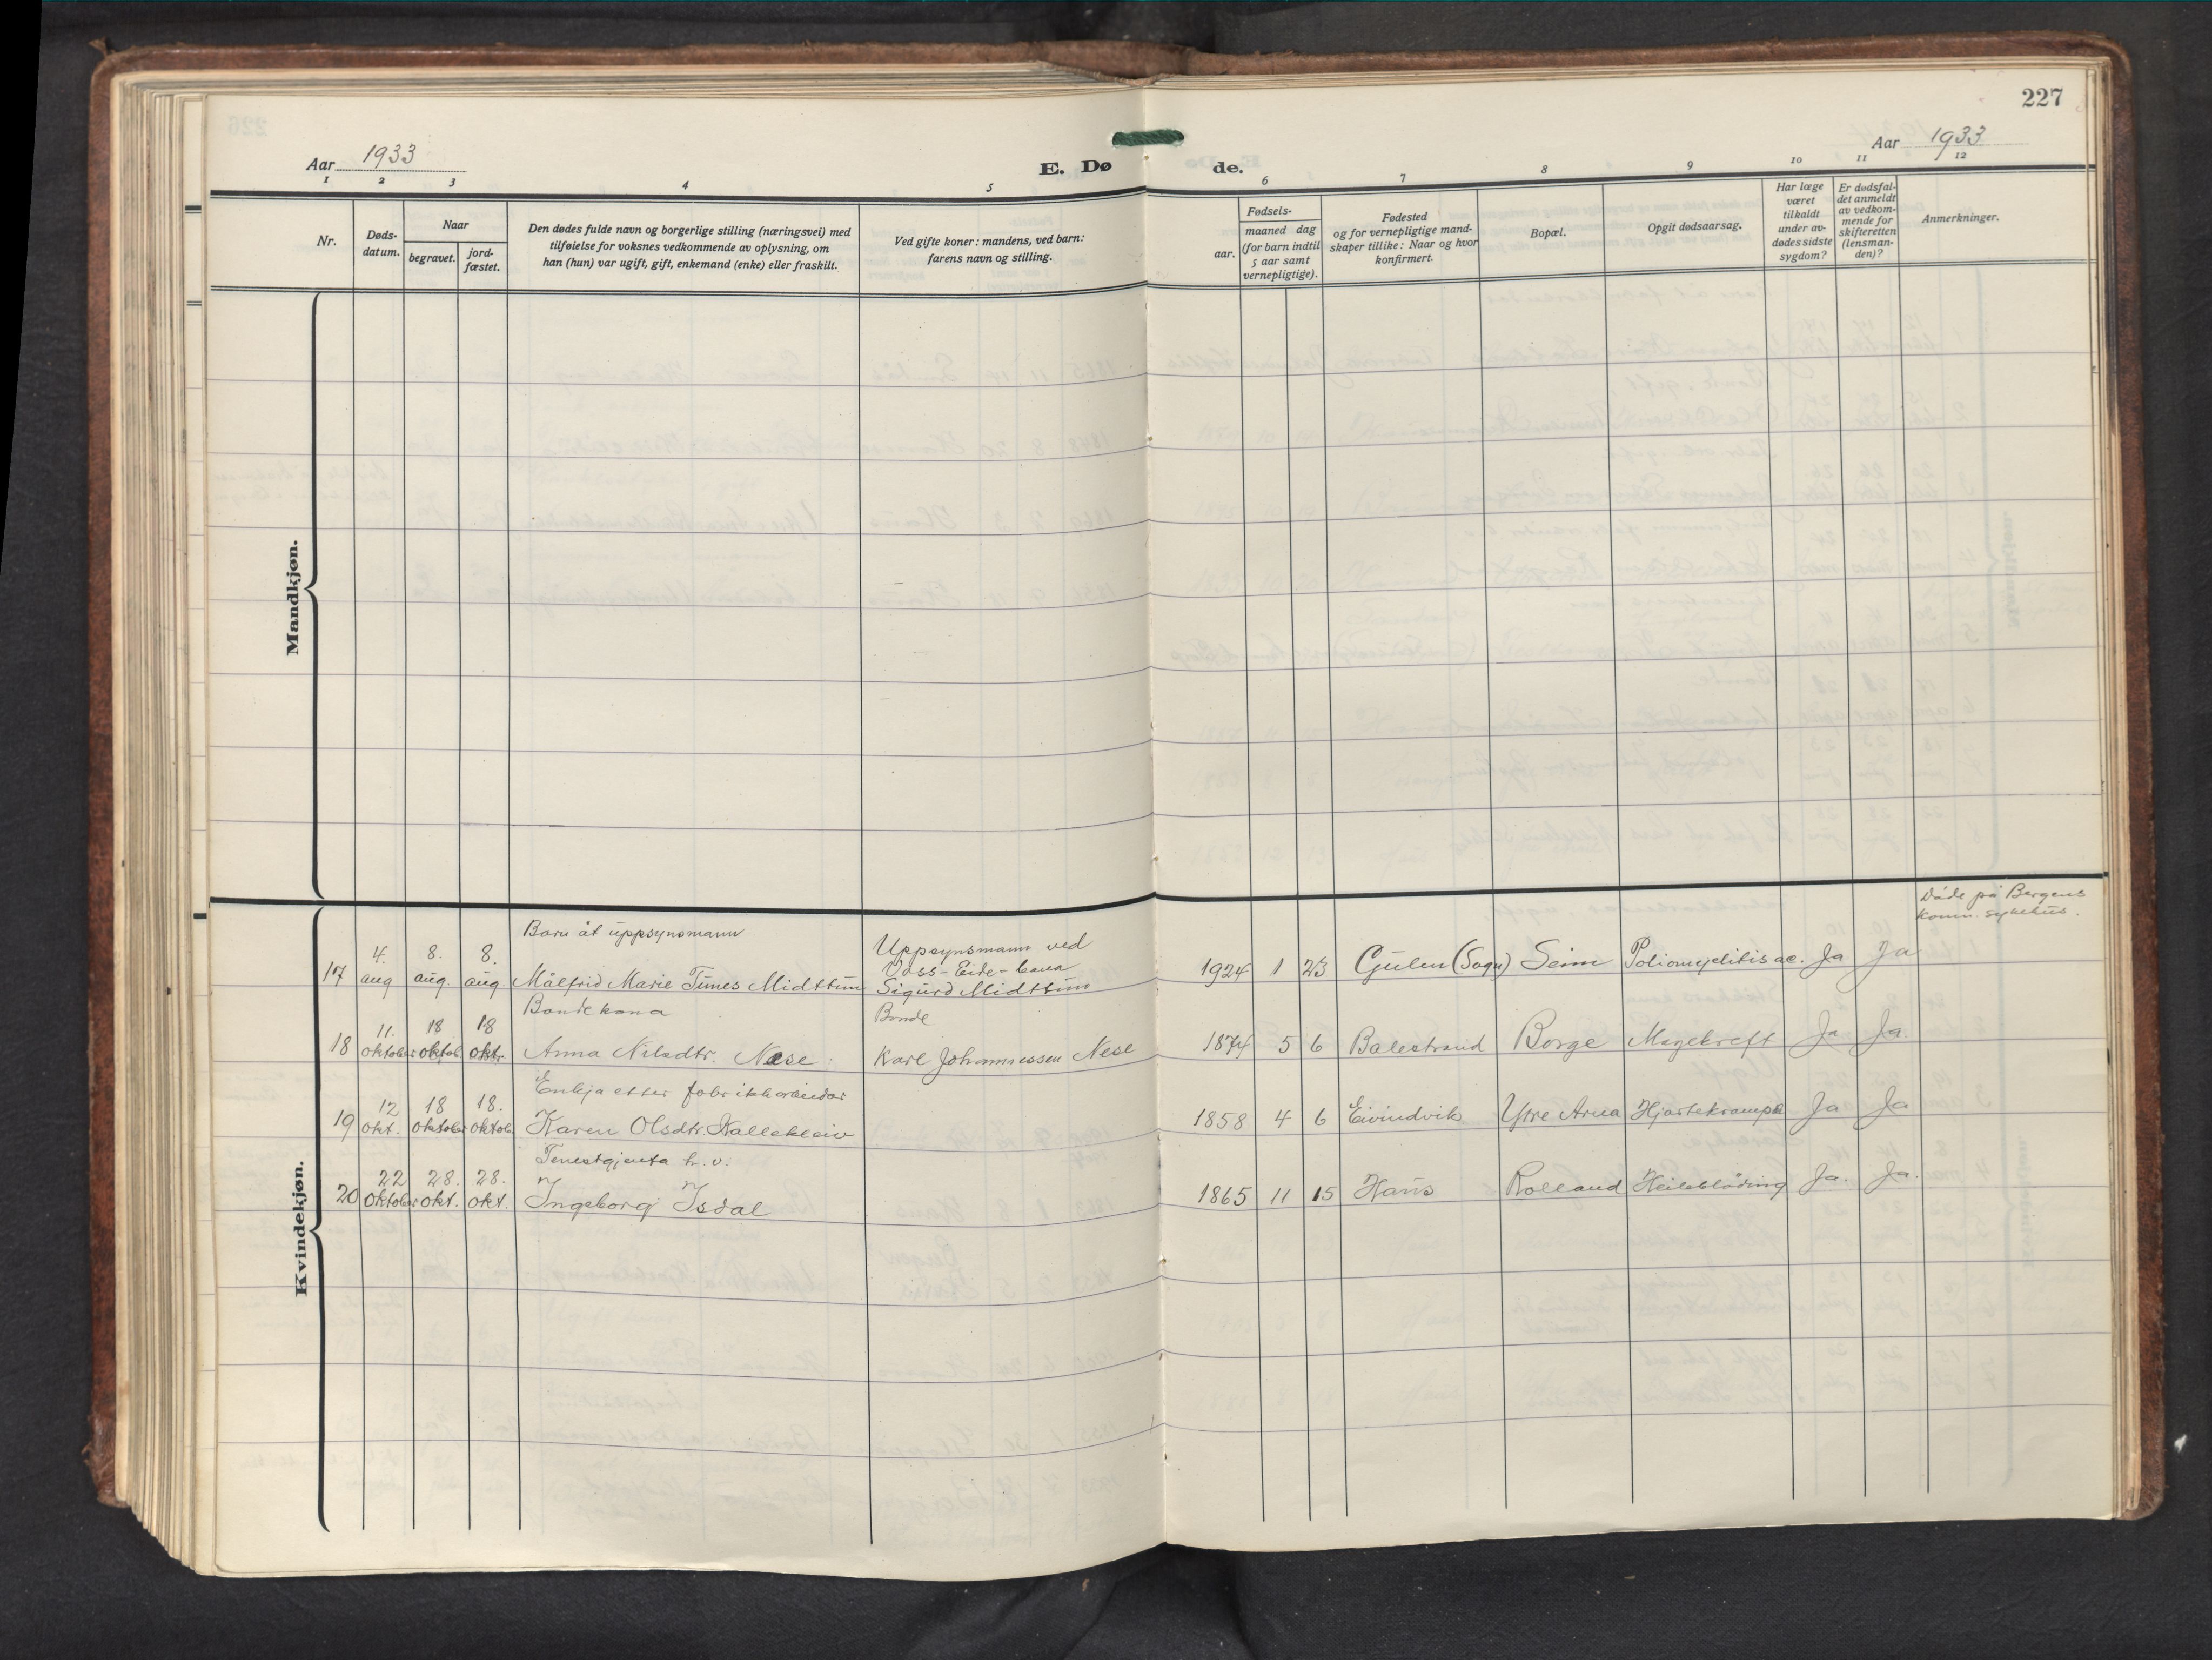 227
Aar 1933
E. Døde.
Aar 1933
1 2 3 4 5 6 7 8 9 10 11 12
Nr.
Døds-
datum.
Naar
begravet.
jord-
fæstet.
Den dødes fulde navn og borgerlige stilling (næringsvei) med
tilføielse for voksnes vedkommende av oplysning, om
han (hun) var ugift, gift, enkemand (enke) eller fraskilt.
Ved gifte koner: mandens, ved barn:
farens navn og stilling.
Fødsels-
aar.
maaned dag
(for barn indtil
5 aar samt
vernepligtige).
Fødested
og for vernepligtige mand-
skaper tillike: Naar og hvor
konfirmert.
Bopæl.
Opgit dødsaarsag.
Har læge
været
tilkaldt
under av-
dødes sidste
sygdom?
Er dødsfal-
det anmeldt
av vedkom-
mende for
skifteretten
(lensman-
den)?
Anmerkninger.
Mandkjøn.
Kvindekjøn.
Døde på Bergens
komm. sykehus.
Barn åt uppsynsmann
Uppsynsmann ved
Voss-Eide-bana
17 4. aug 8. aug. 8. aug Målfrid Marie Tunes Midttun Sigurd Midttun 1924 1 23 Gulen (Sogn) Seim Poliomyelitis ac. Ja Ja
Bondekona Bonde
18 11. oktober 18 oktob. 18 okt. Anna Nilsdtr. Nese Karl Johannessen Nese 1874 5 6 Balestrand Borge Magekreft Ja Ja.
Enkja etter fabrikkarbeidar
19 12 okt. 18 oktober 18. oktob. Karen Olsdtr. Kallekleiv 1858 4 6 Eivindvik Ytre Arna Hjartekrampe Ja Ja
Tenestgjenta h. v.
20 22 oktober 28. okt. 28. okt. Ingeborg Isdal 1865 11 15 Haus Rolland Heilebløding Ja. Ja.